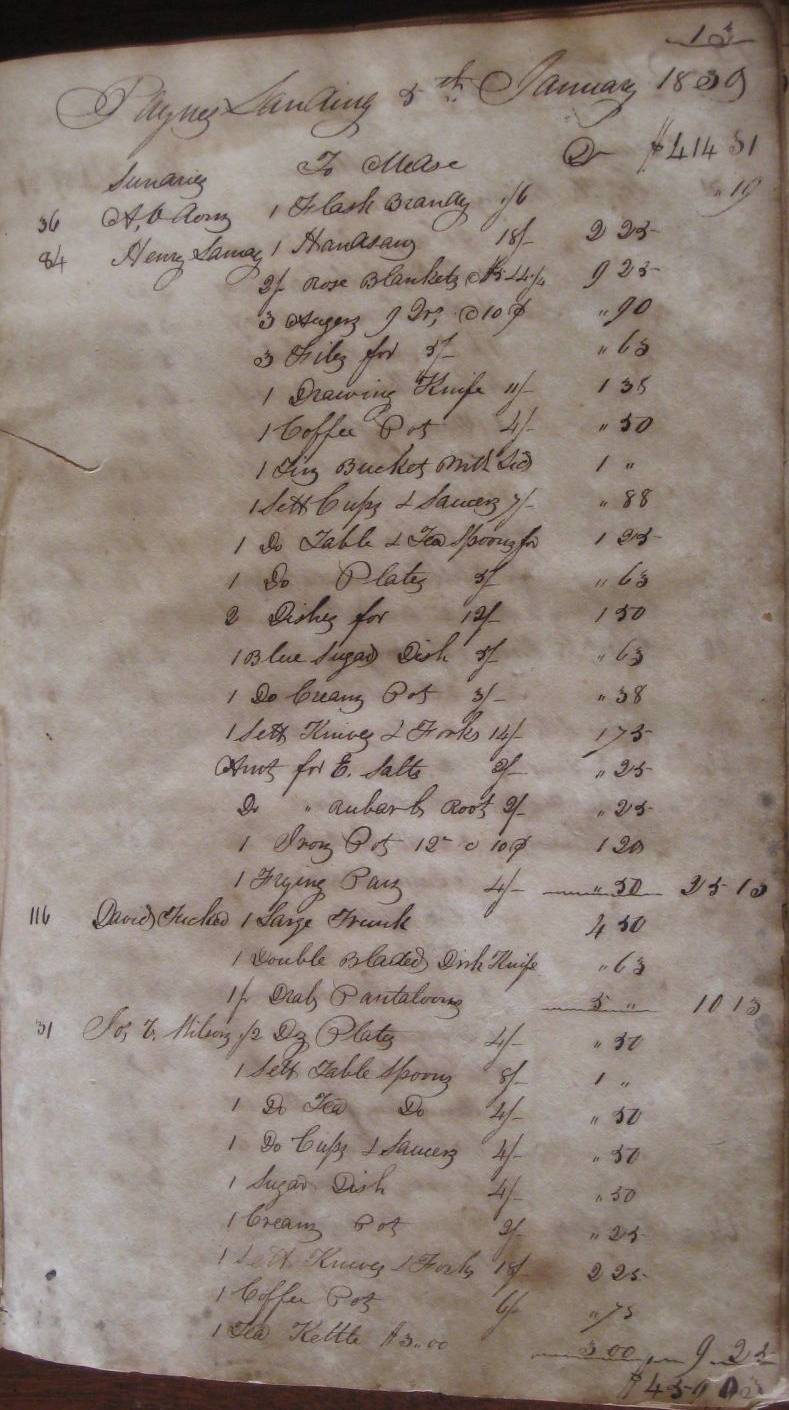 13
Paynes Landing 5th January 1839
Sundries To Mdse Dr $414 51
36 A, 1 Flask Brandy 1/6 " 19
84 Henry 1 Handsaw 18/- 2 25
2/ rose Blankets 9 25
3 Augers 9 Qrs, @ 10 ¢ " 90
3 Files for 5/- " 63
1 Drawing Knife 11/- 1 38
1 Coffee Pot 4/- " 50
1 Tin Bucket With Lid 1 "
1 Sett Cups & Saucers 7/- " 88
1 Do Table & Tea Spoons for 1 25
1 Do Plates 5/ " 63
2 Dishes for 12/- 1 50
1 Blue Sugar Dish 5/- " 63
1 Do Cream Pot 3/- " 38
1 Sett Knives & Forks 14/- 1 75
Amt for E. Salts 2/- " 25
Do " Rubarb Root 2/- " 25
1 Iron Pot 12 @ 10¢ 1 20
1 Frying Pan 4/- " 50 25 13
116 David Tucker 1 Large Trunk 4 50
1 Double Bladed Dirk Knife " 63
1/. Drab Pantaloons 5 " 10 13
31 Jos, T. Wilson 1/2 Dz Plates 4/- " 50
1 Sett Table Spoons 8/- 1 "
1 Do Tea Do 4/- " 50
1 Do Cups & Saucers 4/- " 50
1 Sugar Dish 4/- " 50
1 Cream Pot 2/- " 25
1 Sett Knives & Forks 18/ 2 25
1 Coffee Pot 6/ " 75
1 Tea Kettle $3.00 3 00 9 25
$459